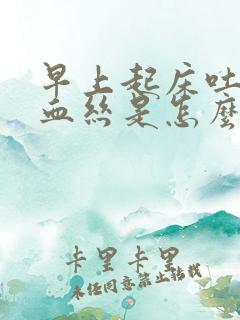 早上起床吐
血丝是怎麽
卡里卡里
未经同意禁止转载